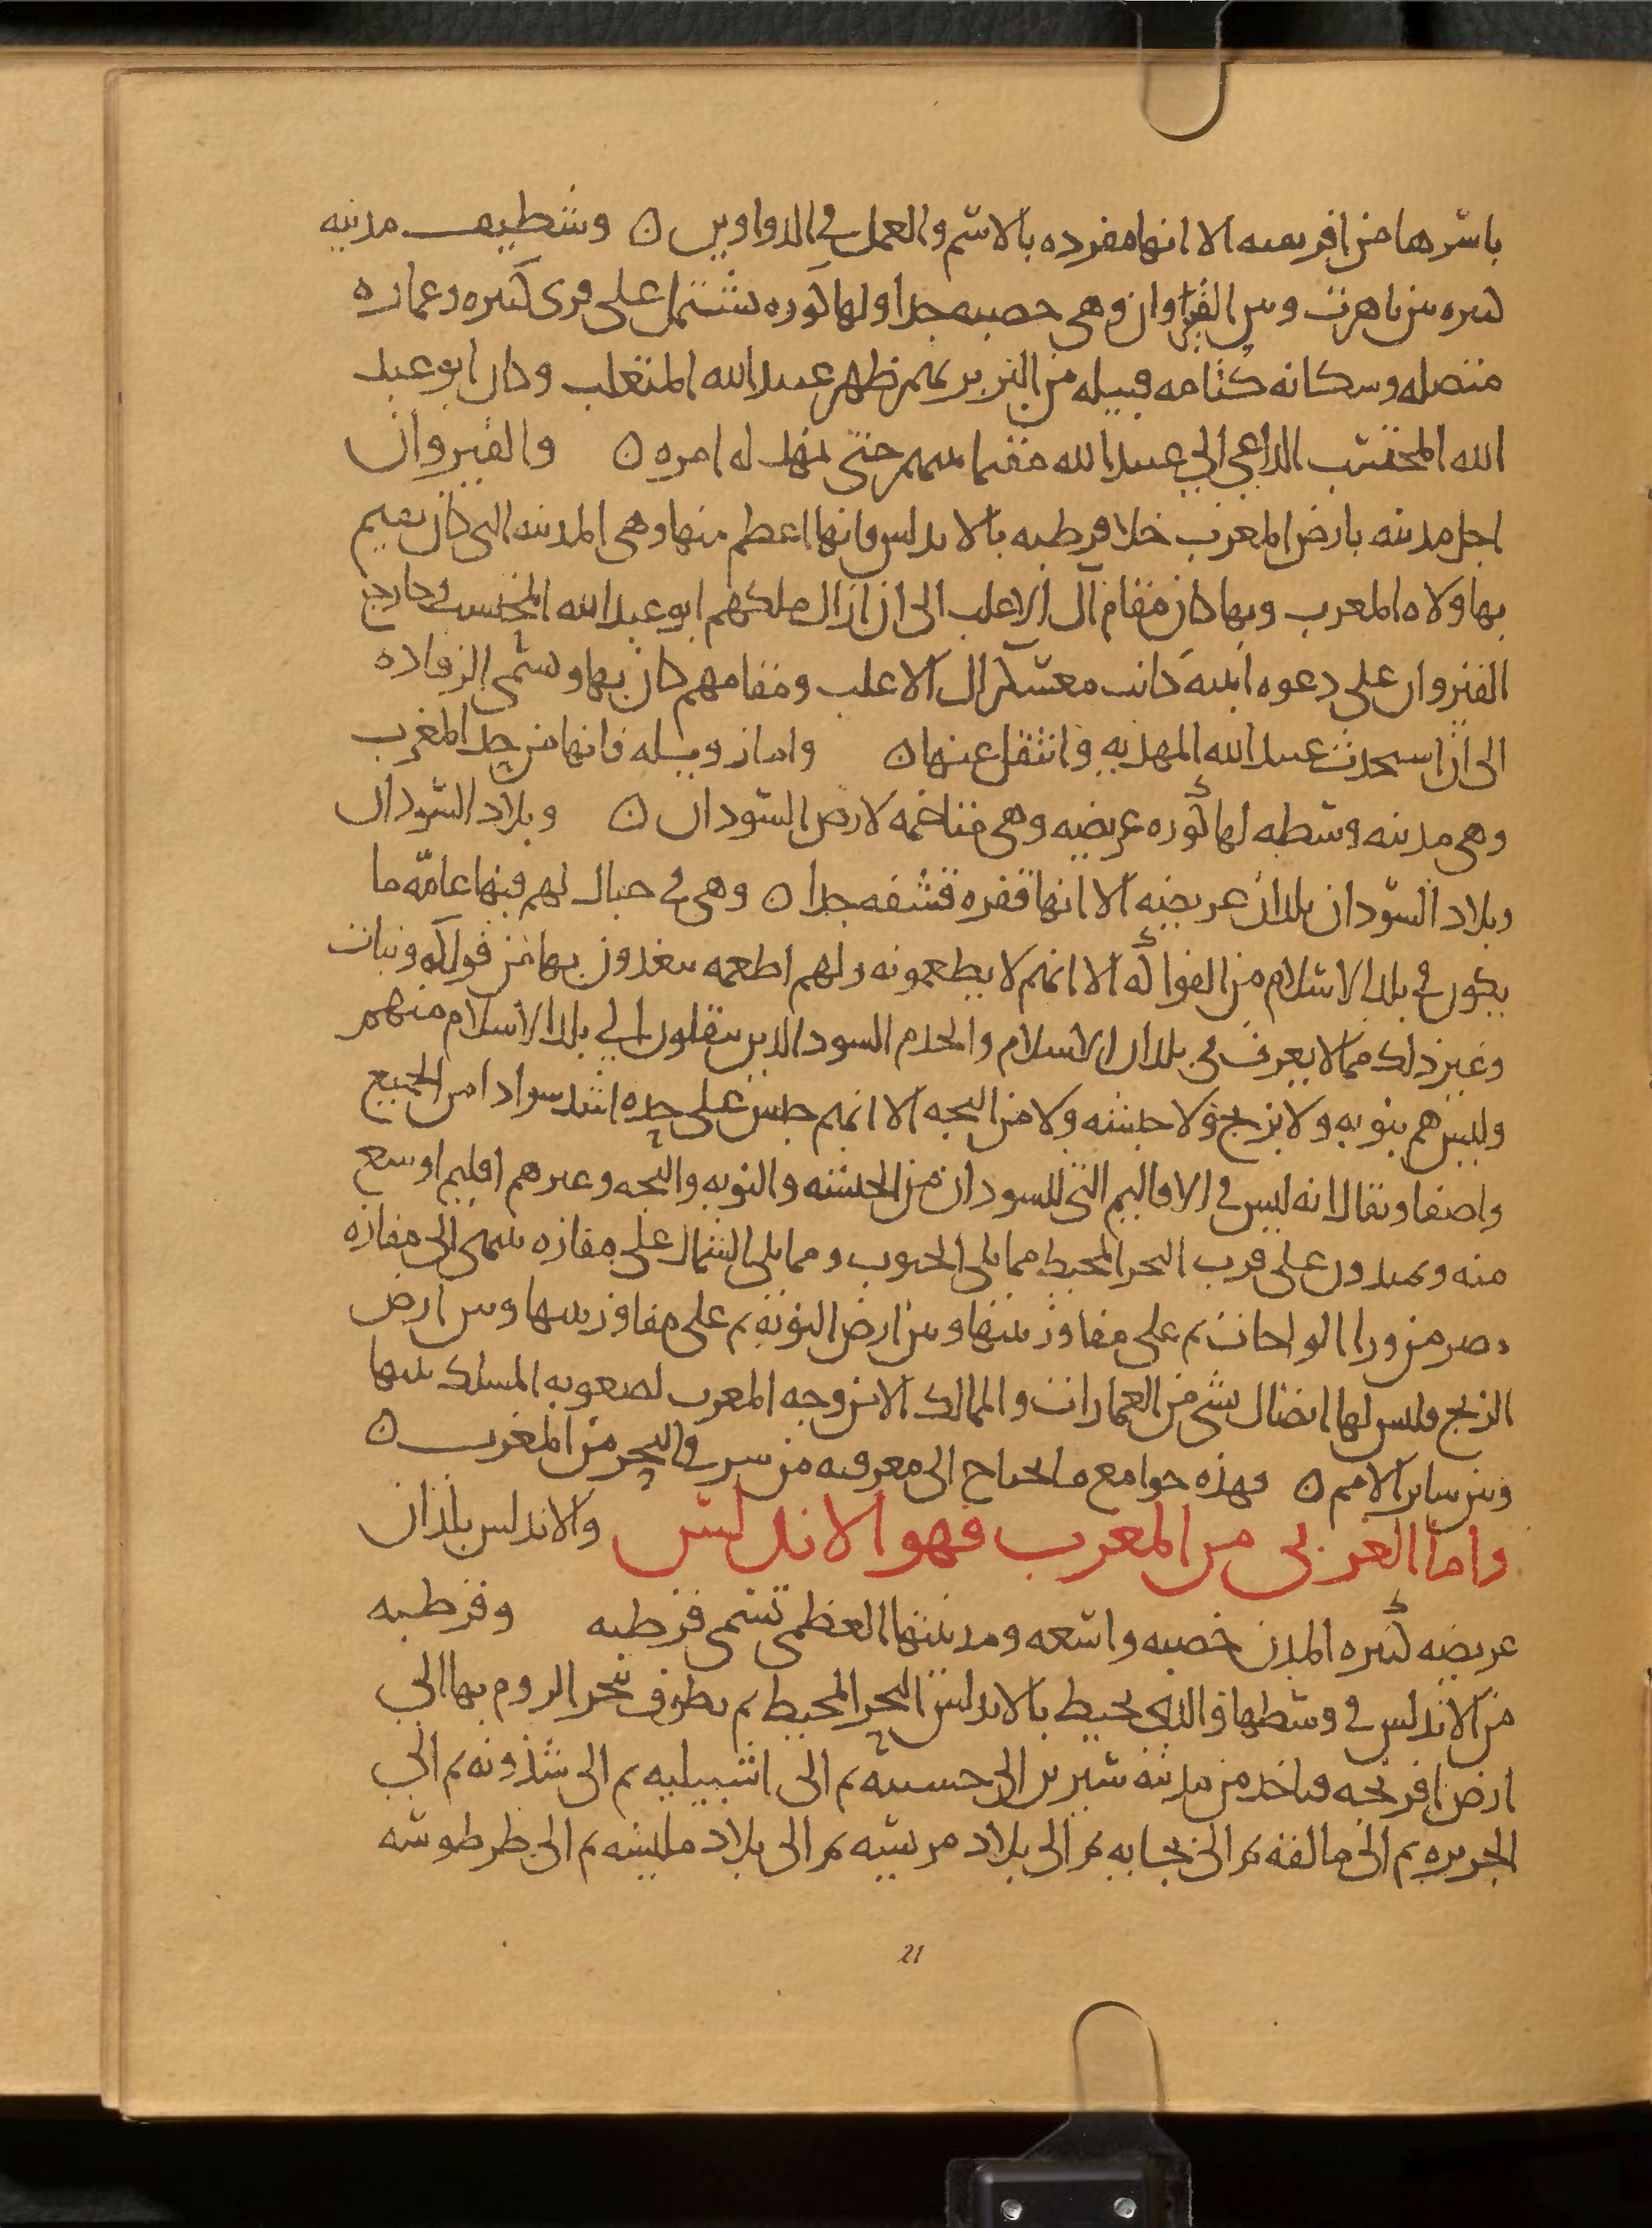 باسرها من افريقيه الا انها مفرده بالاسم والعمل في الدواوين ن وسطيف مدينه
كبيره بين تاهرت وبين القيراوان وهي خصبه جدا ولها كوره تشتمل على قرى كثيره وعماره
متصله وسكانه كتامه قبيله من البربر بهم ظهر عبيد الله المتغلب وكان ابو عبد
الله المحتسب الداعي الي عبيد الله مقيما بينهم حتى تمهد له امره ن والقيروان
اجل مدينه بارض المغرب خلا قرطبه بالاندلس فانها اعظم منها وهي المدينه التي كان يقيم
بها ولاه المغرب وبها كان مقام آل الاغلب الى ان ازال ملكهم ابو عبد الله المحتسب وخارج
القيروان على دعوه ابنيه كانت معسكر ال الاغلب ومقامهم كان بها وتسمى الرقاده
الى ان استحدث عبيد الله المهديه وانتقل عنها ن واما زويله فانها من حد المغرب
وهي مدينه وسطه لها كوره عريضه وهي متاخمه لارض السودان ن وبلاد السودان
وبلاد السودان بلدان عريضه الا انها قفره قشفه جدا ن وهي في جبال لهم فيها عامه ما
يكون في بلد الاسلام من الفواكه الا انهم لا يطعمونه ولهم اطعمه يتغذون بها من فواكه ونبات
وغير ذلك مما لا يعرف في بلدان الاسلام والخدم السود الذين ينقلون الي بلد الاسلام منهم
وليس هم بنوبه ولا بزنج ولا حبشه ولا من البجه الا انهم جنس على حده اشد سوادا من الجميع
واصفا ويقال انه ليس في الاقاليم التي للسودان من الحبشه والنوبه والبجه وغيرهم اقليم اوسع
منه ويمتدون على قرب البحر المحيط مما يلي الجنوب ومما يلي الشمال على مفازه ينتهي الى مفازه
مصر من ورا الواحات ثم على مفاوز بينها وبين ارض النوبه ثم على مفاوز بينها وبين ارض
الزنج وليس لها اتصال بشي من العمارات والممالك الا من وجه المغرب لصعوبه المسلك بينها
وبين ساير الامم ن فهذه جوامع ما يحتاج الى معرفته من شرقي البحر من المغرب ن
واما الغربي من المغرب فهو الاندلس والاندلس بلدان
عريضه كثيره المدن خصبه واسعه ومدينتها العظمى تسمى قرطبه وقرطبه
من الاندلس في وسطها والذي يحيط بالاندلس البحر المحيط ثم يطوف بحر الروم بها الي
ارض افرنجه فياخذ من مدينه شنترين الى اخشنبه ثم الى اشبيليه ثم الى شذونه ثم الي
الجزيره ثم الى مالقه ثم الى بجايه ثم الى بلاد مرسيه ثم الى بلاد ملينسه ثم الى طرطوشه
21